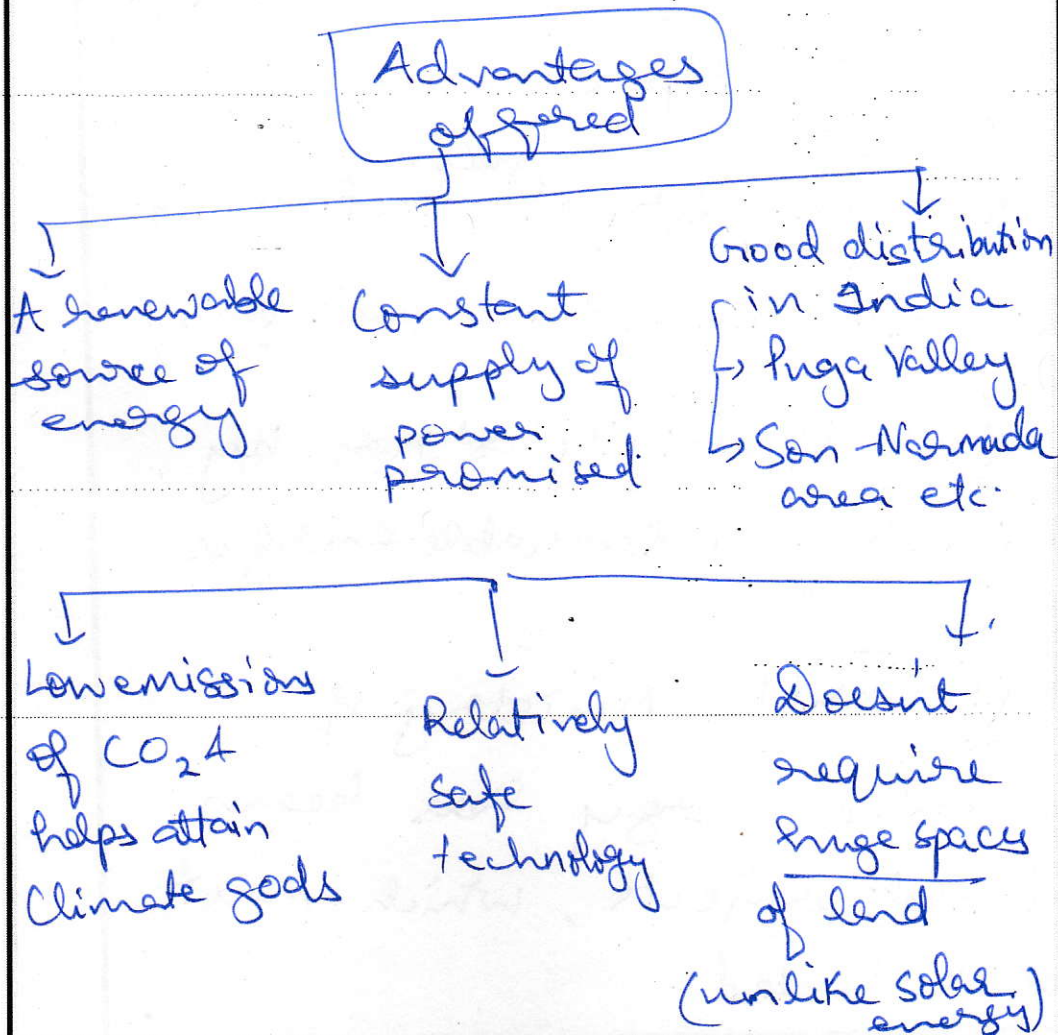 Advantages
offered
A renewable
source of
energy
Constant
supply of
power
promised
Good distribution
in India
→ Puga Valley
→ Son-Narmada
area etc.
Low emissions
of CO₂ &
helps attain
Climate goals
Relatively
safe
technology
Doesn't
require
huge spaces
of land
(unlike solar
energy)